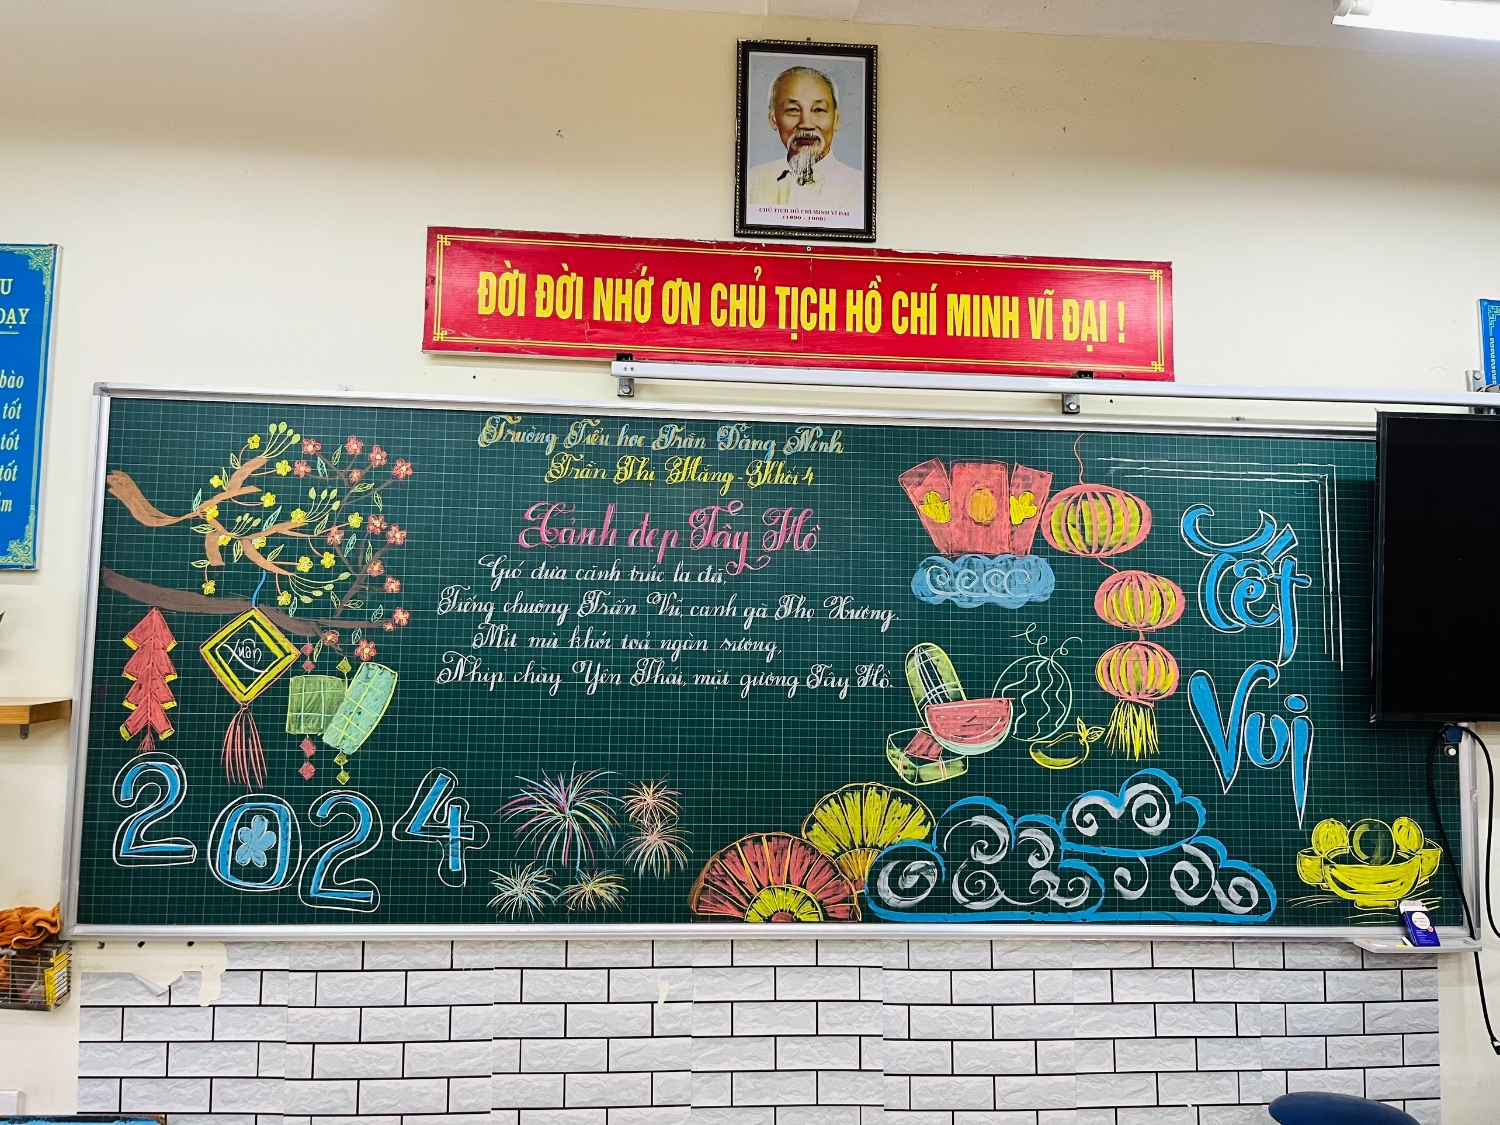 CHỦ TỊCH HỒ CHÍ MINH VĨ ĐẠI
(1890 - 1969)
ĐỜI ĐỜI NHỚ ƠN CHỦ TỊCH HỒ CHÍ MINH VĨ ĐẠI !
U
DẠY
bào
tốt
tốt
tốt
Trường Tiểu học Trần Đăng Ninh
Trần Thị Hằng - Khối 4
Cảnh đẹp Tây Hồ
Gió đưa cành trúc la đà,
Tiếng chuông Trấn Vũ, canh gà Thọ Xương.
Mịt mù khói toả ngàn sương,
Nhịp chày Yên Thái, mặt gương Tây Hồ.
Xuân
2024
Tết
Vui